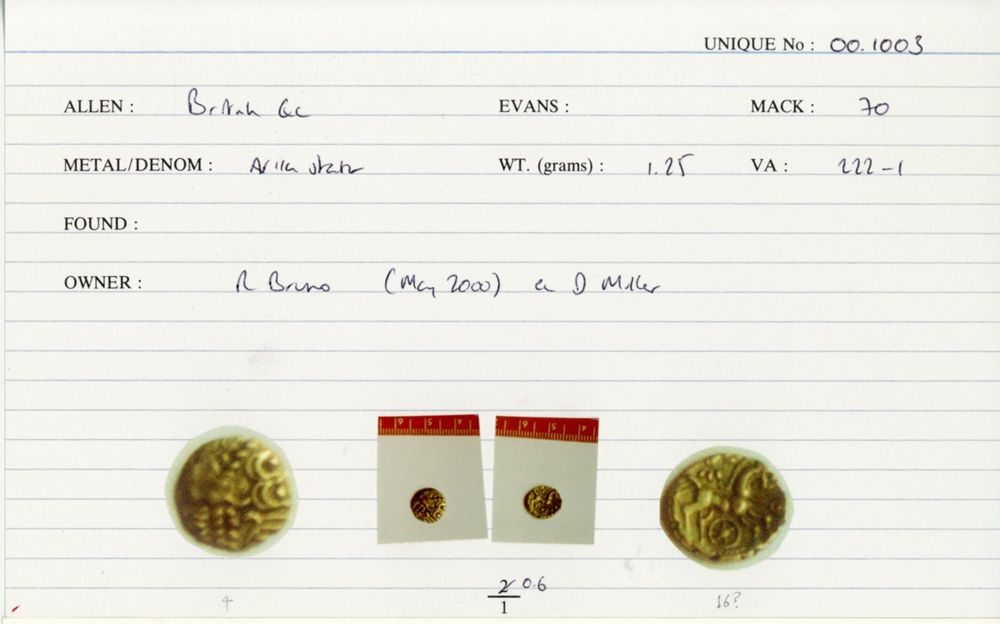 UNIQUE No : 00.1003
ALLEN : British Qc EVANS : MACK : 70
METAL/DENOM : AV 1/4 stater WT. (grams) : 1.25 VA : 222-1
FOUND :
OWNER : R Bruno (May 2000) ex D Miller
6 5 4 6 5 4
2 0.6
1
4 16?